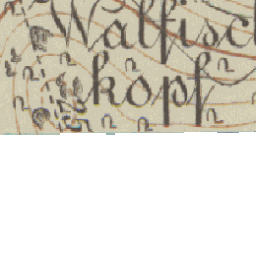 Walfisch
kopf